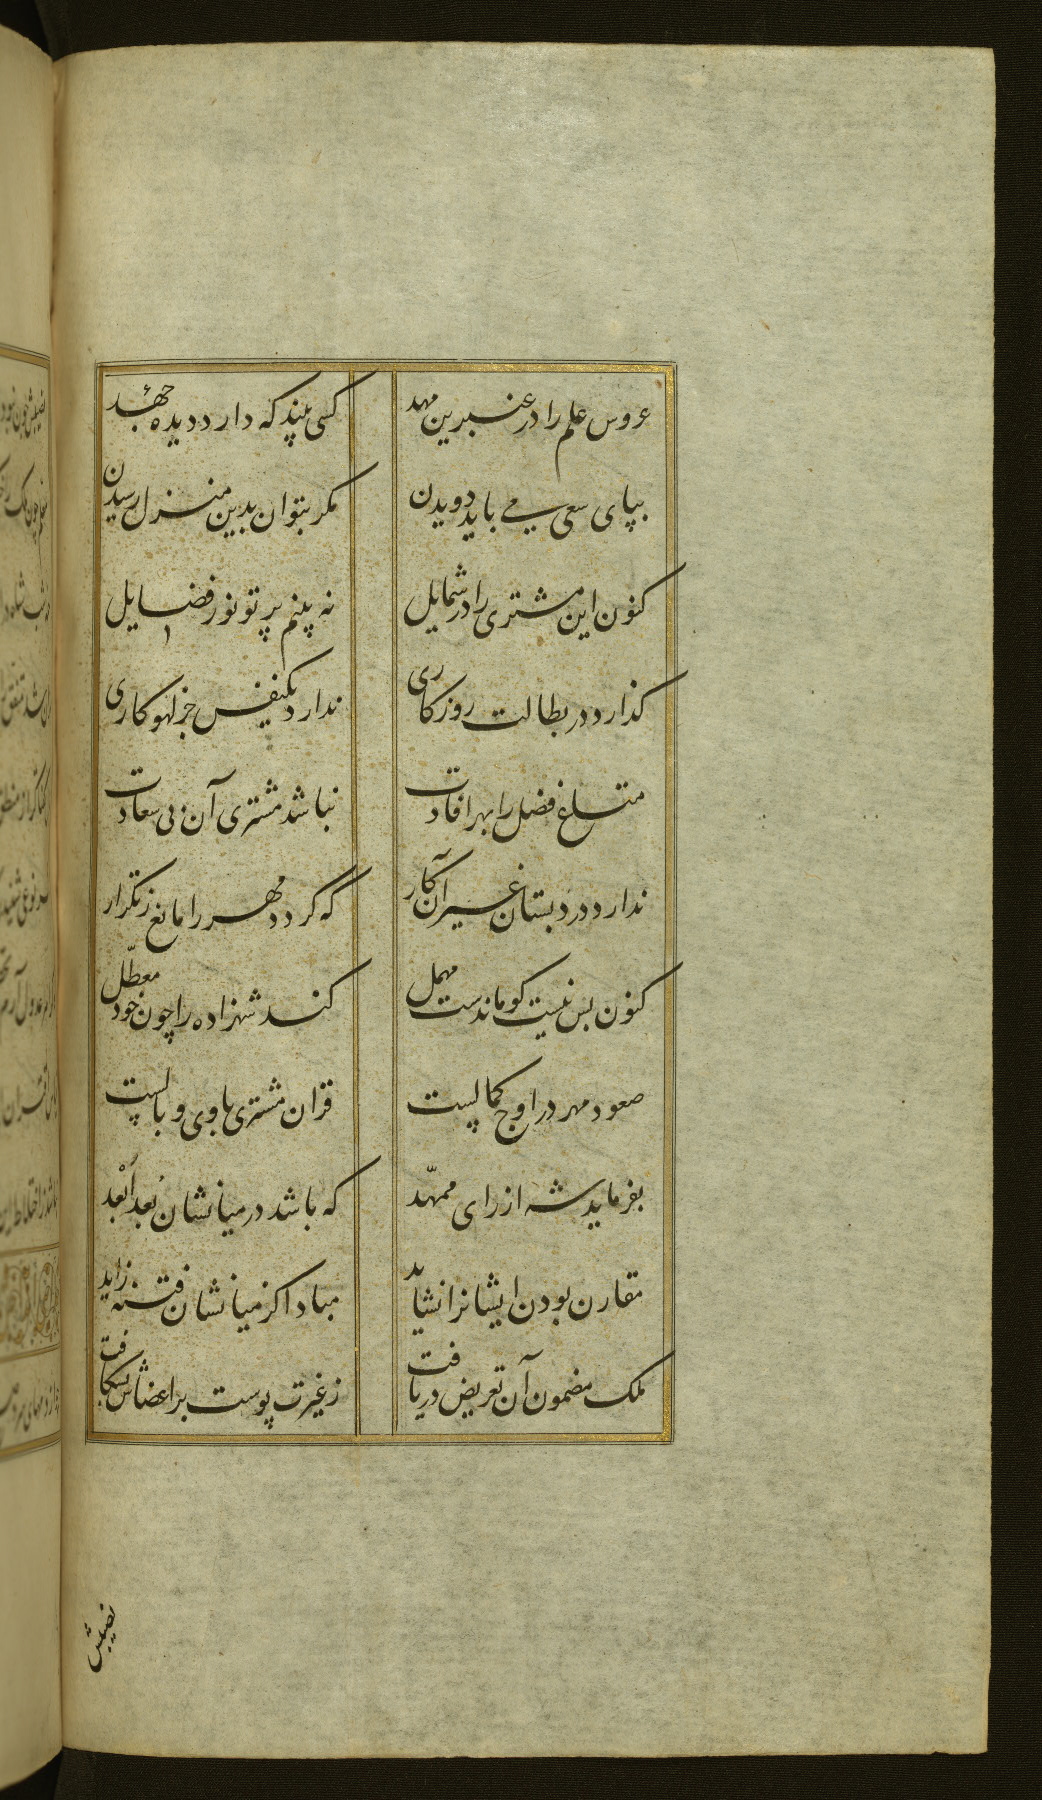 عروس علم را در عنبرین مهد
کسی بیند که دارد دیده جهد
بپای سعی می باید دویدن
مکر بتوان بدین منزل رسیدن
کنون این مشتری را در شمایل
نه بینم پرتو نور فضایل
کذارد در بطالت روزکاری
ندارد یکنفس جز لهو کاری
متاع فضل را بهر افادت
نباشد مشتری آن بی سعادت
ندارد در دبستان غیر آن کار
که کردد مهر را مانع ز تکرار
کنون بس نیست کو ماندست مهمل
کند شهزاده را چون خود معطّل
صعود مهر در اوج کمالیست
قران مشتری با وی وبالیست
بفرماید شه از رای ممهّد
که باشد در میانشان بُعد اَبْعد
مقارن بودن ایشانرا نشاید
مبادا کز میانشان فتنه زاید
ملک مضمون آن تعریض دریافت
ز غیرت پوست بر اعضاش بشکافت
نصیبش